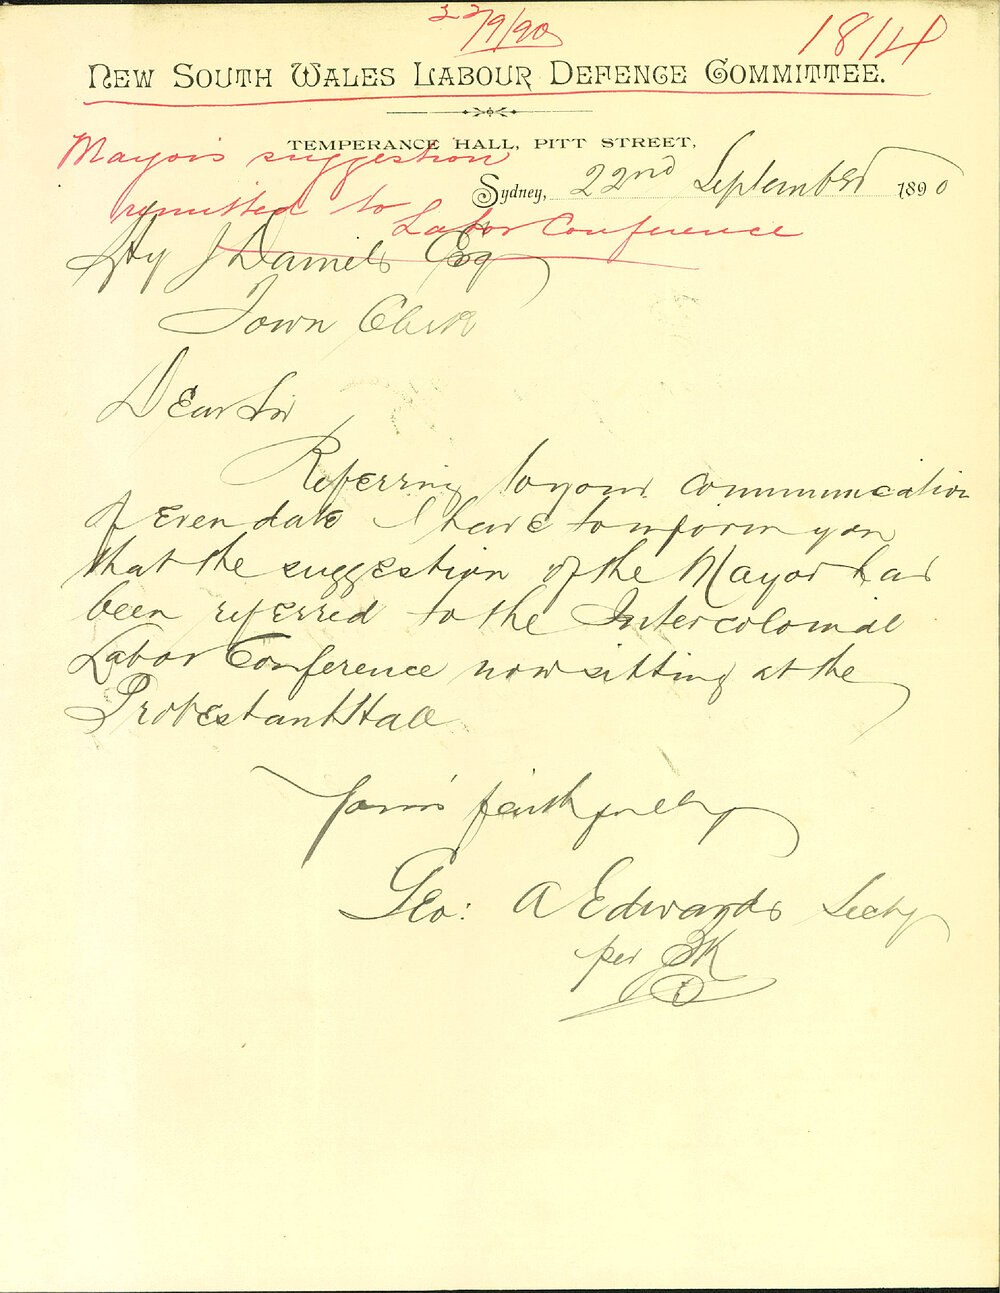 22/9/90
1814
NEW SOUTH WALES LABOUR DEFENCE COMMITTEE.
TEMPERANCE HALL, PITT STREET,
Mayor's suggestion
Sydney, 22nd September 1890
remitted to
Labor Conference
Hy J Daniels Esq
Town Clerk
Dear Sir
Referring to your communication
of even date I have to inform you
that the suggestion of the Mayor has
been referred to the Intercolonial
Labor Conference now sitting at the
Protestant Hall
Yours faithfully
Geo: A Edwards Secty
per